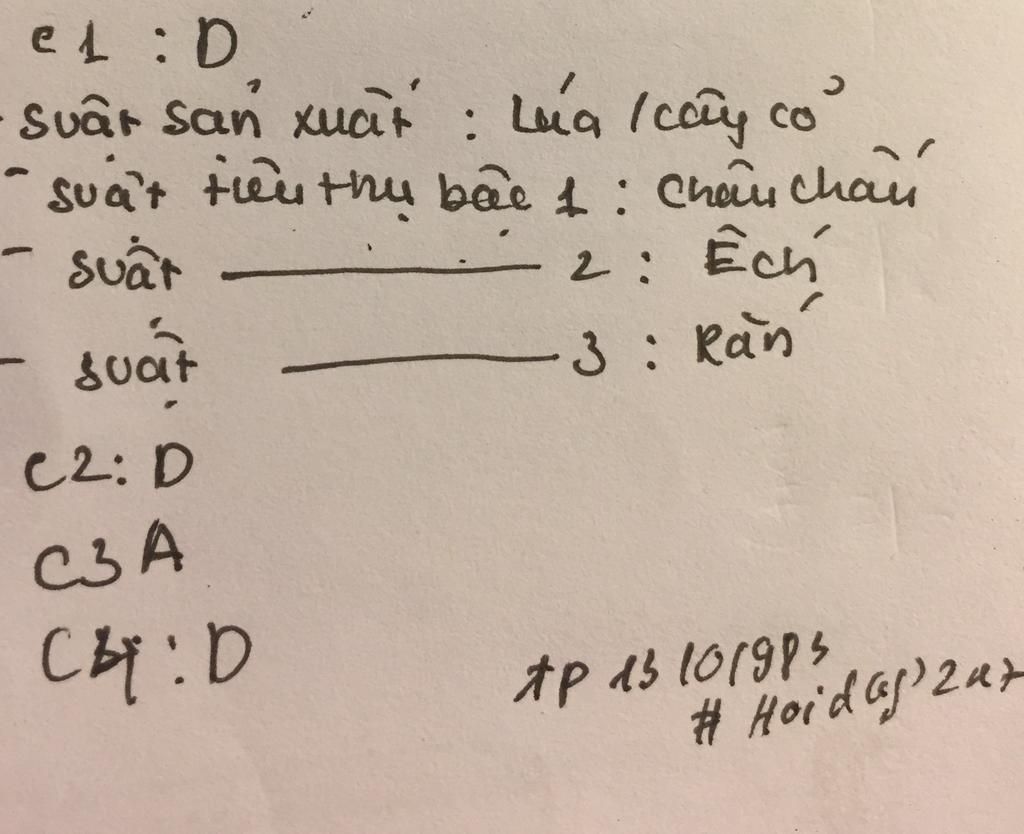 C1 : D
- suất sản xuất : Lúa / cây cỏ
- suất tiêu thụ bậc 1 : Châu chấu
- suất ——— 2 : Ếch
- suất ——— 3 : Rắn
C2: D
C3 A
C4 : D
# Hoidap247